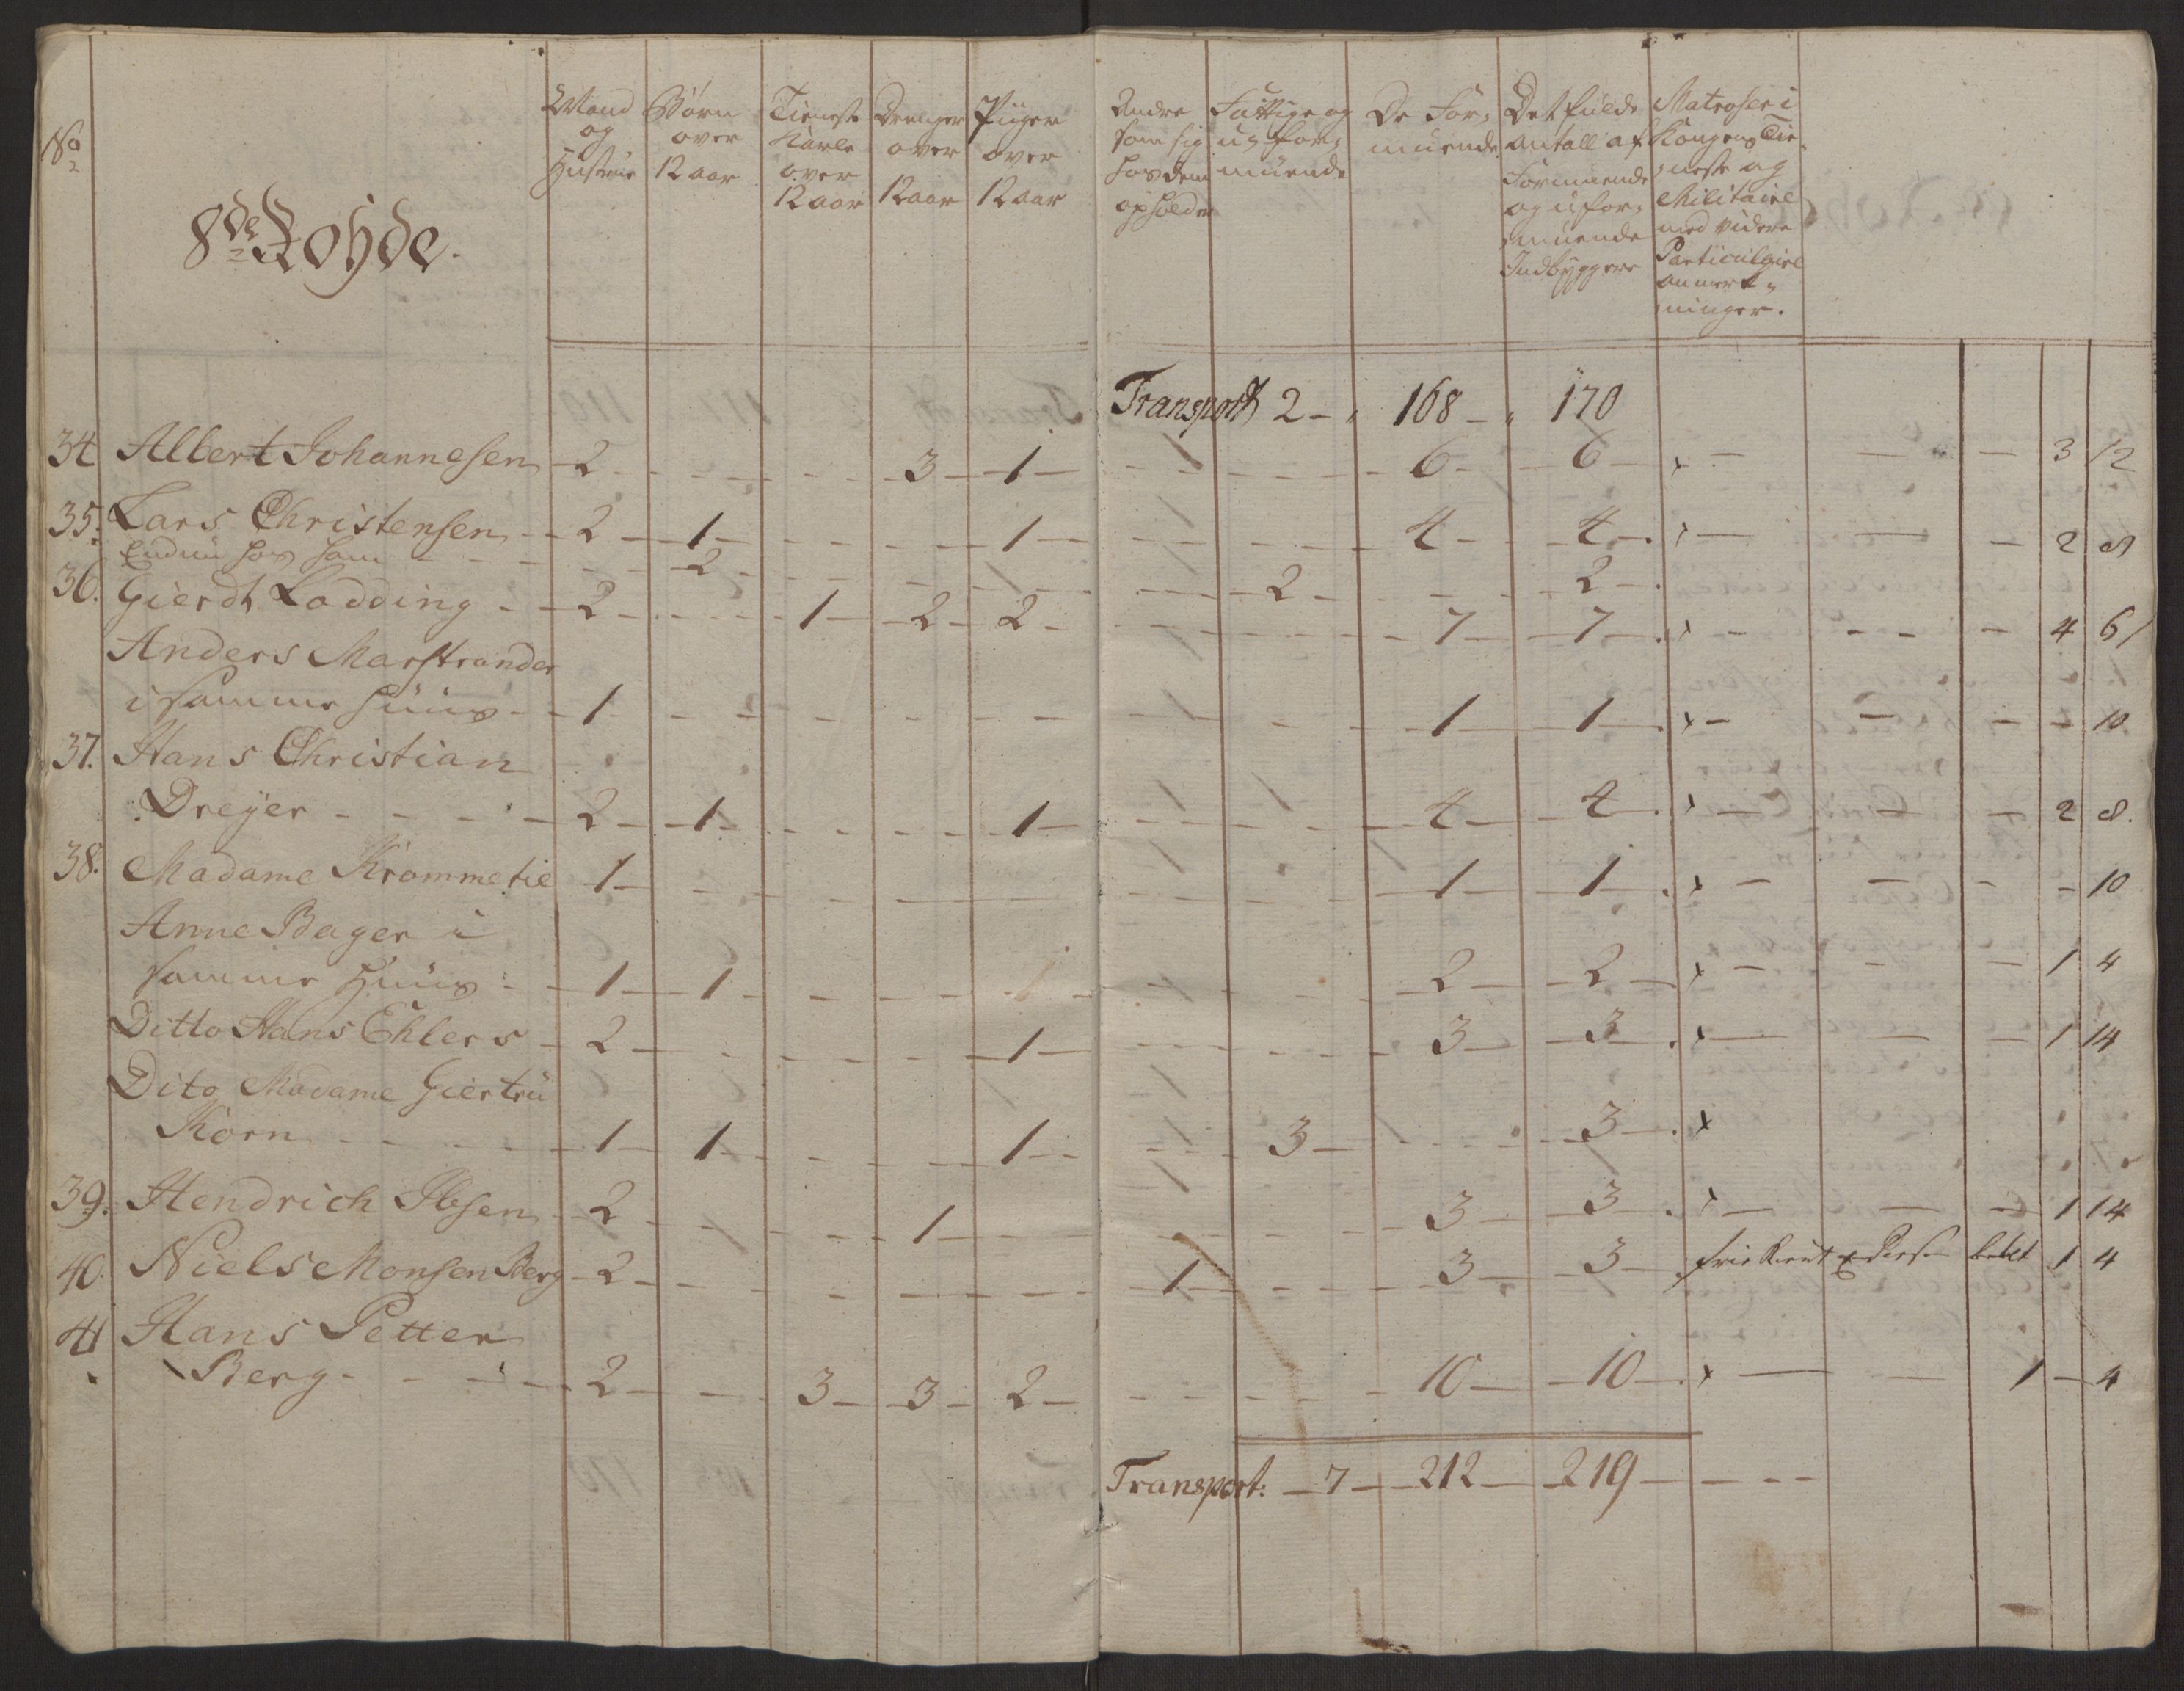 No
8de Rohde.
Mand og Hustrue
Børn over 12 aar
Tieneste Karle over 12 aar
Drenger over 12 aar
Piiger over 12 aar
Andre som sig hos dem opholder
Fattige og u-formuende
De Formuende
Det fulde Antall af Formuende og uformuende Indbyggere
Matroser i Kongens Tieneste og Militaire med videre Particulaire anmerkninger.
Transport 2 - 168 - 170
34 Albert Johannesen 2 - 3 - 1 - 6 - 6 - x - 3 12
35. Lars Christensen 2 - 1 - 1 - 4 - 4 - x - 2 8
Endnu hos ham - 2 - 2 - 2 -
36. Gierdt Lodding 2 - 1 - 2 - 2 - 7 - 7 - x - 4 6
Anders Marstrander
i samme Huus 1 - 1 - 1 - x - 10
37. Hans Christian
Dreÿer 2 - 1 - 1 - 4 - 4 - x - 2 8.
38. Madame Krommetie 1 - 1 - 1 - x - 10
Anne Bager i
samme Huus 1 - 1 - 2 - 2 - x - 1 4
Ditto Hans Ehlers 2 - 1 - 3 - 3 - x - 1 14
Dito Madame Giertrü
Korn 1 - 1 - 1 - 3 - 3 - x
39. Hendrich Ibsen 2 - 1 - 3 - 3 - x - 1 14
40. Niels Monsen Berg 2 - 1 - 3 - 3 - betalt 1 4
41 Hans Petter
Berg 2 - 3 - 3 - 2 - 10 - 10 - x - 1 - 4
Transport: - 7 - 212 - 219 - - -